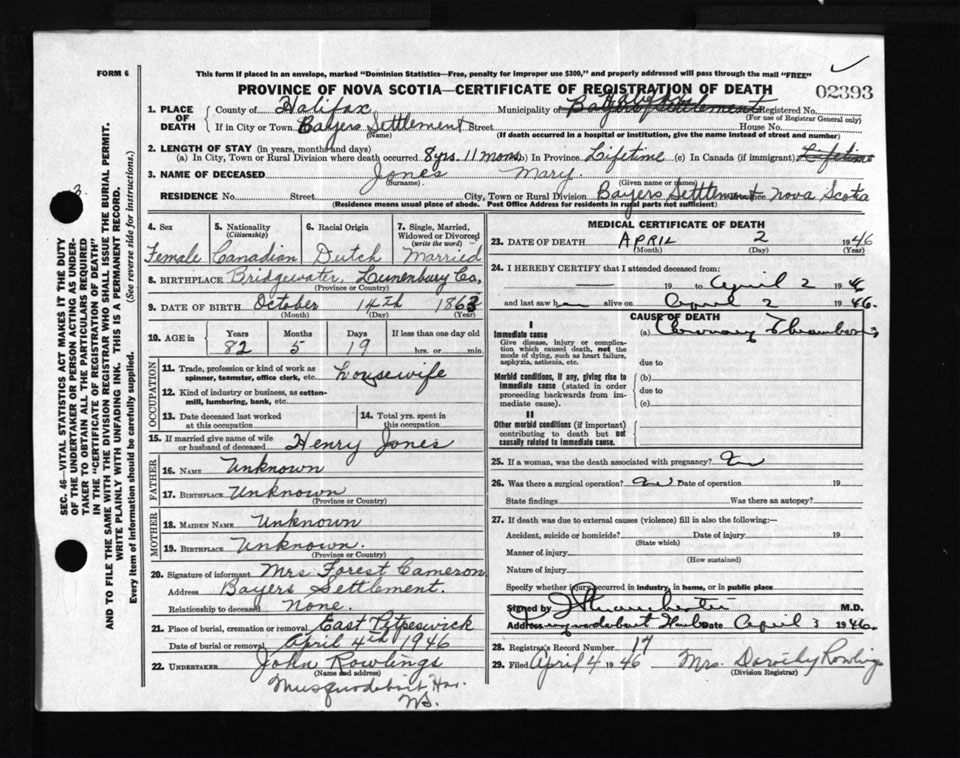 FORM 6
This form if placed in an envelope, marked "Dominion Statistics—Free, penalty for improper use $300," and properly addressed will pass through the mail "FREE"
PROVINCE OF NOVA SCOTIA—CERTIFICATE OF REGISTRATION OF DEATH
02393
SEC. 46—VITAL STATISTICS ACT MAKES IT THE DUTY
OF THE UNDERTAKER OR PERSON ACTING AS UNDER-
TAKER TO OBTAIN ALL THE PARTICULARS REQUIRED
IN THE "CERTIFICATE OF REGISTRATION OF DEATH"
AND TO FILE THE SAME WITH THE DIVISION REGISTRAR WHO SHALL ISSUE THE BURIAL PERMIT.
WRITE PLAINLY WITH UNFADING INK. THIS IS A PERMANENT RECORD.
Every item of information should be carefully supplied. (See reverse side for instructions.)
1. PLACE OF DEATH
County of Halifax Municipality of Bayers Settlement Registered No.
(For use of Registrar General only)
If in City or Town Bayers Settlement Street House No.
(Name) (If death occurred in a hospital or institution, give the name instead of street and number)
2. LENGTH OF STAY (in years, months and days)
(a) In City, Town or Rural Division where death occurred 8 yrs. 11 mons. (b) In Province Lifetime (c) In Canada (if immigrant) Lifetime
3. NAME OF DECEASED Jones Mary.
(Surname) (Given name or names)
RESIDENCE No. Street City, Town or Rural Division Bayers Settlement Nova Scotia
(Residence means usual place of abode. Post Office Address for residents in rural parts not sufficient)
4. Sex 5. Nationality (Citizenship) 6. Racial Origin 7. Single, Married, Widowed or Divorced (write the word)
Female Canadian Dutch Married
8. BIRTHPLACE Bridgewater, Lunenburg Co,
(Province or Country)
9. DATE OF BIRTH October 14th 1863
(Month) (Day) (Year)
10. AGE in Years Months Days If less than one day old
82 5 19 hrs. or min.
OCCUPATION
11. Trade, profession or kind of work as spinner, teamster, office clerk, etc. housewife
12. Kind of industry or business, as cotton-mill, lumbering, bank, etc.
13. Date deceased last worked at this occupation
14. Total yrs. spent in this occupation
15. If married give name of wife or husband of deceased Henry Jones
FATHER
16. NAME Unknown
17. BIRTHPLACE Unknown
(Province or Country)
MOTHER
18. MAIDEN NAME Unknown
19. BIRTHPLACE Unknown.
(Province or Country)
20. Signature of informant Mrs Forest Cameron
Address Bayers Settlement.
Relationship to deceased None.
21. Place of burial, cremation or removal East Petpeswick
Date of burial or removal April 4th 1946
22. UNDERTAKER John Rowlings
(Name and address)
Musquodoboit Har.
NS.
MEDICAL CERTIFICATE OF DEATH
23. DATE OF DEATH APRIL 2 1946
(Month) (Day) (Year)
24. I HEREBY CERTIFY that I attended deceased from:
19 to April 2 1946
and last saw her alive on April 2 1946.
CAUSE OF DEATH
I
Immediate cause
Give disease, injury or complication which caused death, not the mode of dying, such as heart failure, asphyxia, asthenia, etc.
(a) Coronary Thrombosis
due to
Morbid conditions, if any, giving rise to immediate cause (stated in order proceeding backwards from immediate cause).
(b)
due to
(c)
II
Other morbid conditions (if important) contributing to death but not causally related to immediate cause.
25. If a woman, was the death associated with pregnancy? no
26. Was there a surgical operation? no Date of operation 19
State findings Was there an autopsy?
27. If death was due to external causes (violence) fill in also the following:—
Accident, suicide or homicide? Date of injury 19
(State which)
Manner of injury
(How sustained)
Nature of injury
Specify whether injury occurred in industry, in home, or in public place
Signed by M.D.
Address Musquodoboit Harb Date April 3 1946.
28. Registrar's Record Number 17
29. Filed April 4 1946 Mrs. Dorothy Rowlings
(Division Registrar)